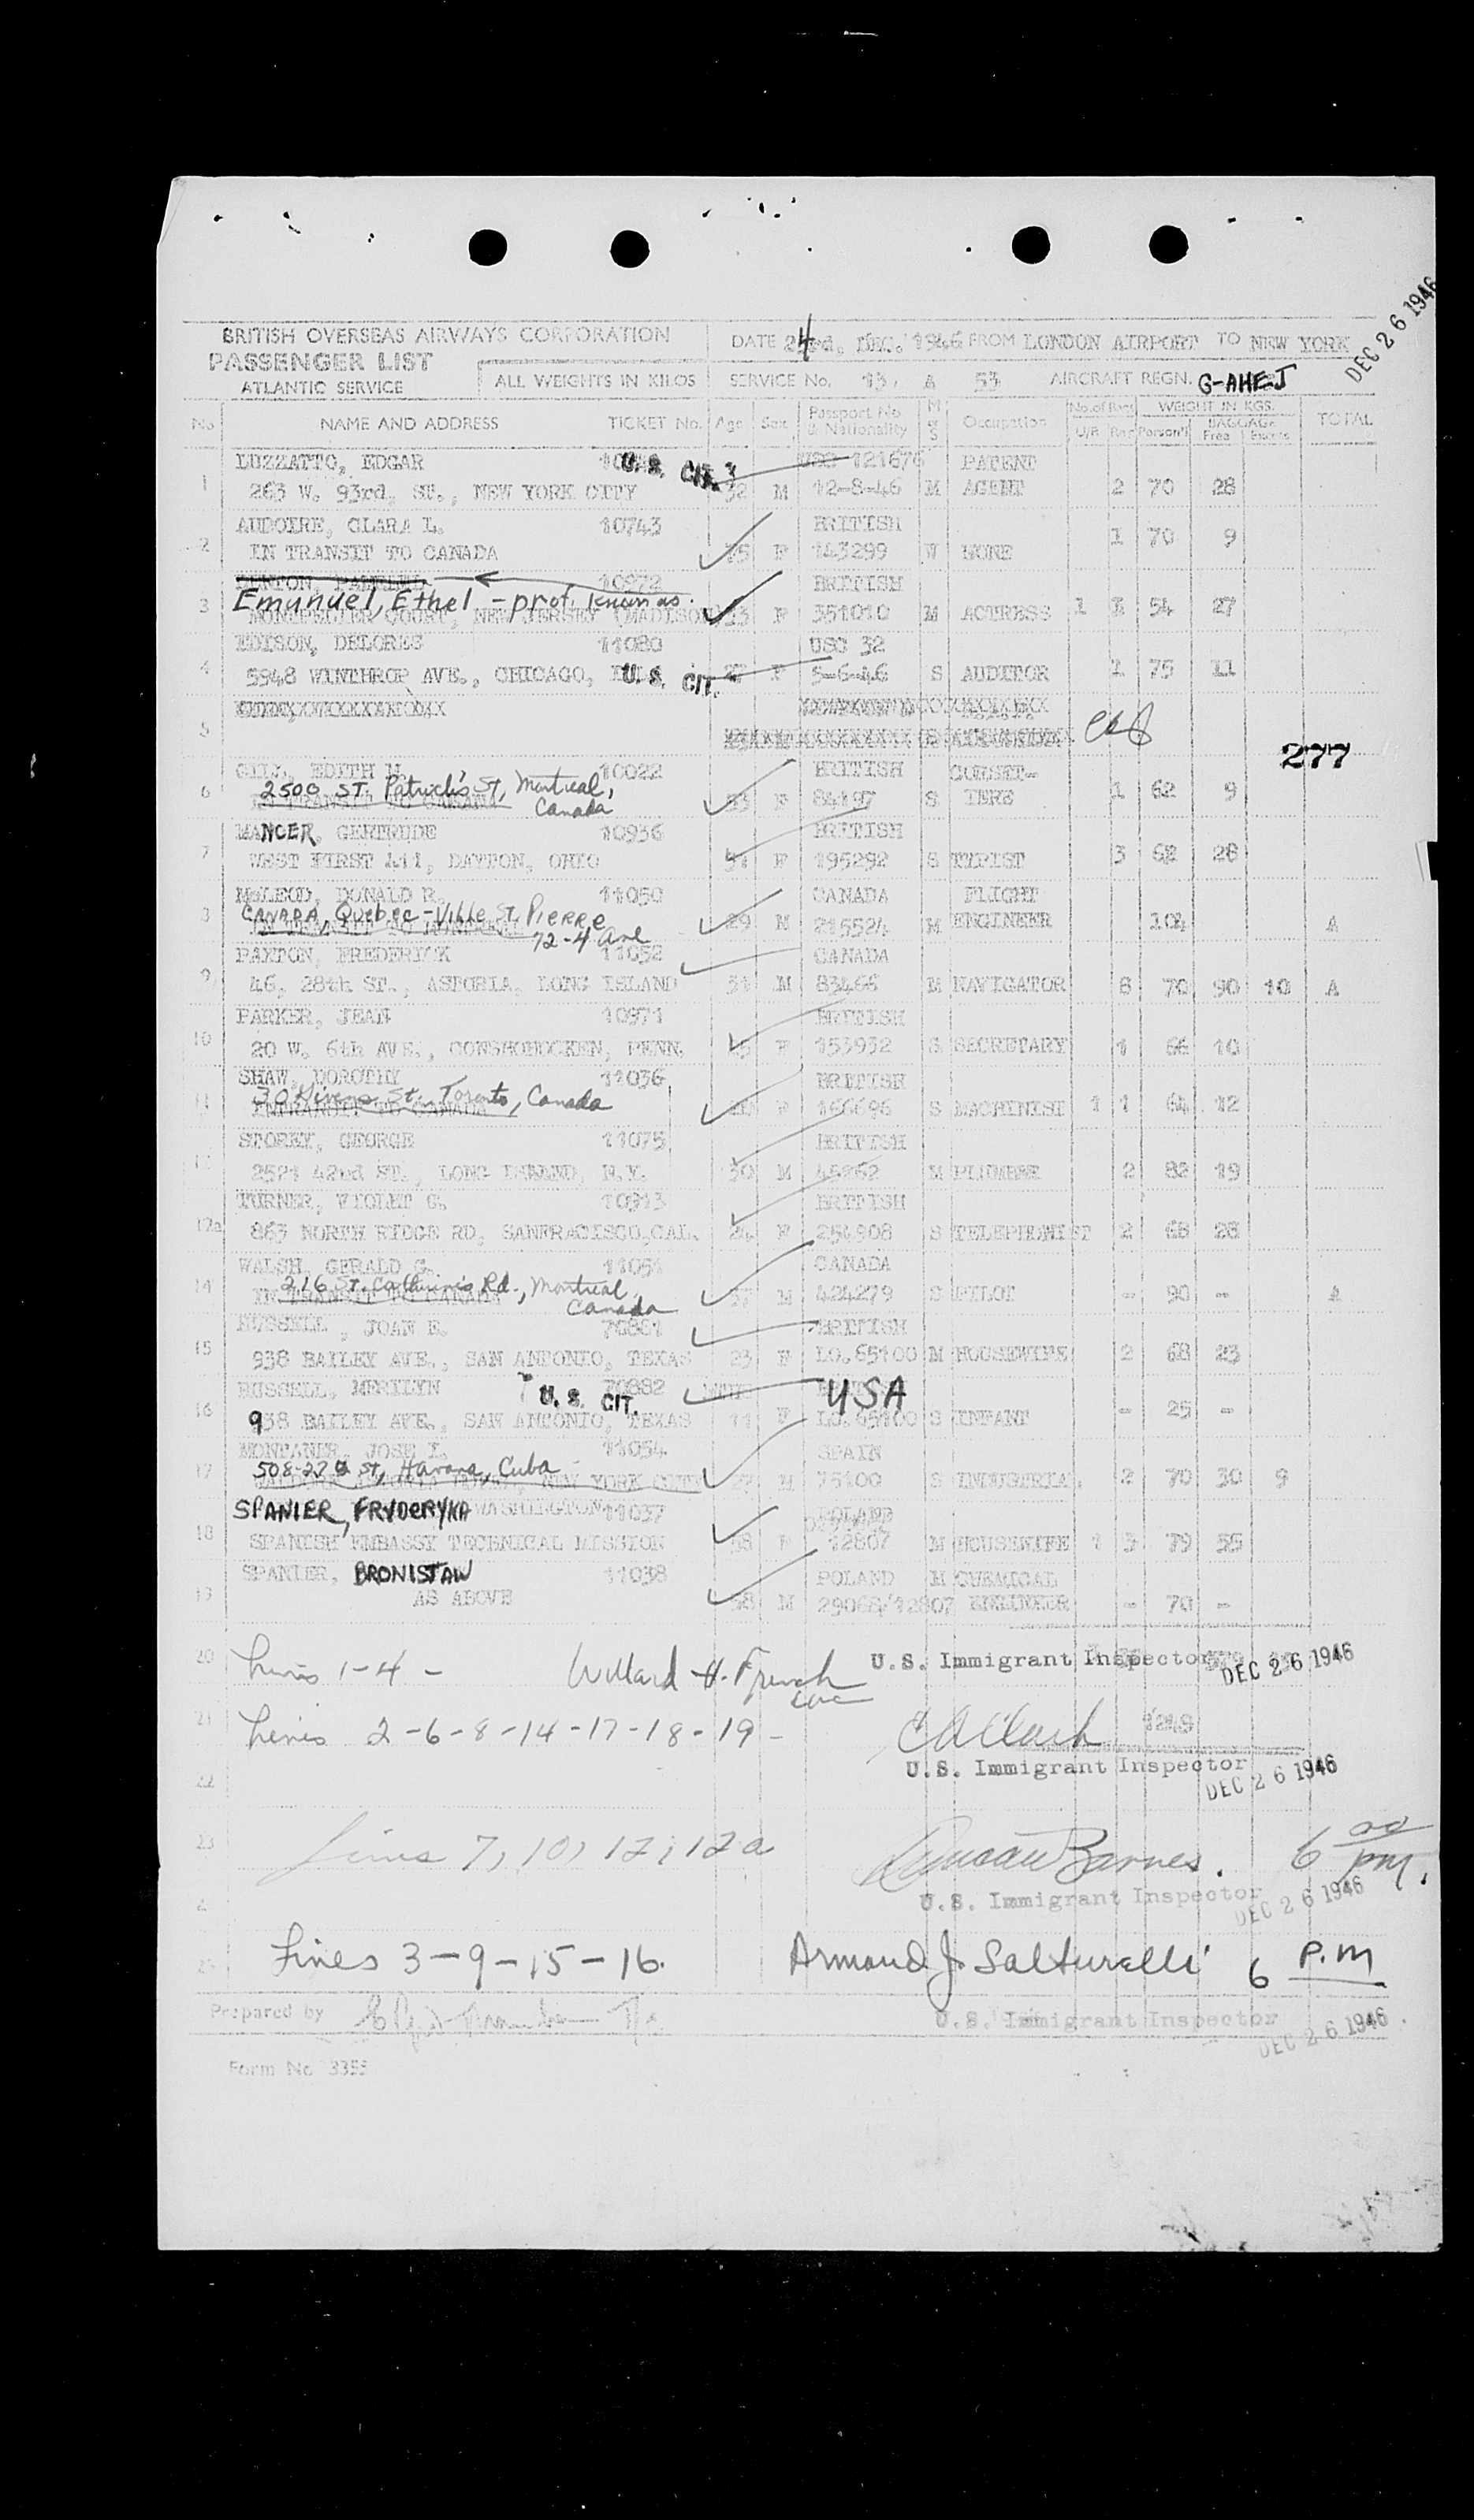 DEC 26 1946
BRITISH OVERSEAS AIRWAYS CORPORATION
PASSENGER LIST
ATLANTIC SERVICE
ALL WEIGHTS IN KILOS
DATE 24 DEC. 1946 FROM LONDON AIRPORT TO NEW YORK
SERVICE No. 13, A 53 AIRCRAFT REGN. G-AHEJ
No NAME AND ADDRESS TICKET No. Age Sex Passport No & Nationality M or S Occupation No. of Pcs U/R Reg WEIGHT IN KGS. Person'l BAGGAGE Free Excess TOTAL
LUZZATTO, EDGAR U.S. CIT. USC 121676 PATENT
1 263 W. 93rd. ST., NEW YORK CITY 32 M 12-8-46 M AGENT 2 70 28
AUDOIRE, CLARA L. 10743 BRITISH
2 IN TRANSIT TO CANADA 75 F 143299 W NONE 1 70 9
10972 BRITISH
Emanuel, Ethel - prof. known as.
3 MONTPELIER COURT, NEW JERSEY (MADISON) F 351010 M ACTRESS 1 54 27
EDISON, DELORES 11080 USC 32
4 5948 WINTHROP AVE., CHICAGO, U.S. CIT. 27 F 5-6-46 S AUDITOR 1 75 11
5
277
GILL, EDITH 10022 BRITISH CORSET-
2500 ST. Patrick's St, Montreal, Canada
6 IN TRANSIT TO CANADA 53 F 84197 S IERE 1 62 9
MANGER, GERTRUDE 10936 BRITISH
7 WEST FIRST 411, DAYTON, OHIO F 195292 S TYPIST 3 62 28
McLEOD, DONALD R. 11050 CANADA FLIGHT
CANADA, Quebec - Ville St. Pierre
72-4 Ave
8 29 M 215524 M ENGINEER 104 A
PAXTON, FREDERICK 11052 CANADA
9 46, 28th ST., ASTORIA, LONG ISLAND 31 M 83466 M NAVIGATOR 8 70 90 10 A
PARKER, JEAN 10971 BRITISH
10 20 W. 6th AVE., CONSHOHOCKEN, PENN. F 153932 S SECRETARY 1 66 10
SHAW, DOROTHY 11036 BRITISH
30 Givens St. Toronto, Canada
11 INTRANSIT TO CANADA F 166696 S MACHINIST 1 1 64 12
STOREY, GEORGE 11075 BRITISH
12 2521 42nd ST., LONG ISLAND, N.Y. 30 M 46262 M PLUMBER 2 82 19
TURNER, VIOLET G. 10913 BRITISH
12a 863 NORTH RIDGE RD, SANFRACISCO, CAL. 24 F 254908 S TELEPHONIST 2 68 28
WALSH, GERALD G. 11051 CANADA
216 St. Catherine's Rd., Montreal, Canada
14 IN TRANSIT TO CANADA M 424279 S PILOT - 90 - A
RUSSELL, JOAN E. 70881 BRITISH
15 938 BAILEY AVE., SAN ANTONIO, TEXAS 23 F LO.65100 M HOUSEWIFE 2 68 23
RUSSELL, MERILYN U.S. CIT. 70882 USA
16 938 BAILEY AVE., SAN ANTONIO, TEXAS 11 F LO.65100 S INFANT - 25 -
MONTANER, JOSE I. 11054 SPAIN
508-27 St, Havana, Cuba
17 NEW YORK CITY 27 M 75100 S INDUSTRIAL 2 70 30 9
SPANIER, FRYDERYKA WASHINGTON 11037 POLAND
18 SPANISH EMBASSY TECHNICAL MISSION 58 F 12807 M HOUSEWIFE 1 3 79 55
SPANIER, BRONISTAW 11038 POLAND M CHEMICAL
19 AS ABOVE 58 M 29068/12807 ENGINEER - 70 -
20 Lines 1-4 - Willard H. French U.S. Immigrant Inspector DEC 26 1946
21 Lines 2-6-8-14-17-18-19 - 1249
U.S. Immigrant Inspector DEC 26 1946
22
23 Lines 7, 10, 12, 12a Barnes. 6 00 pm.
U.S. Immigrant Inspector DEC 26 1946
25 Lines 3-9-15-16. Armand J. Salturelli 6 P.M
Prepared by U.S. Immigrant Inspector DEC 26 1946
Form No 3355